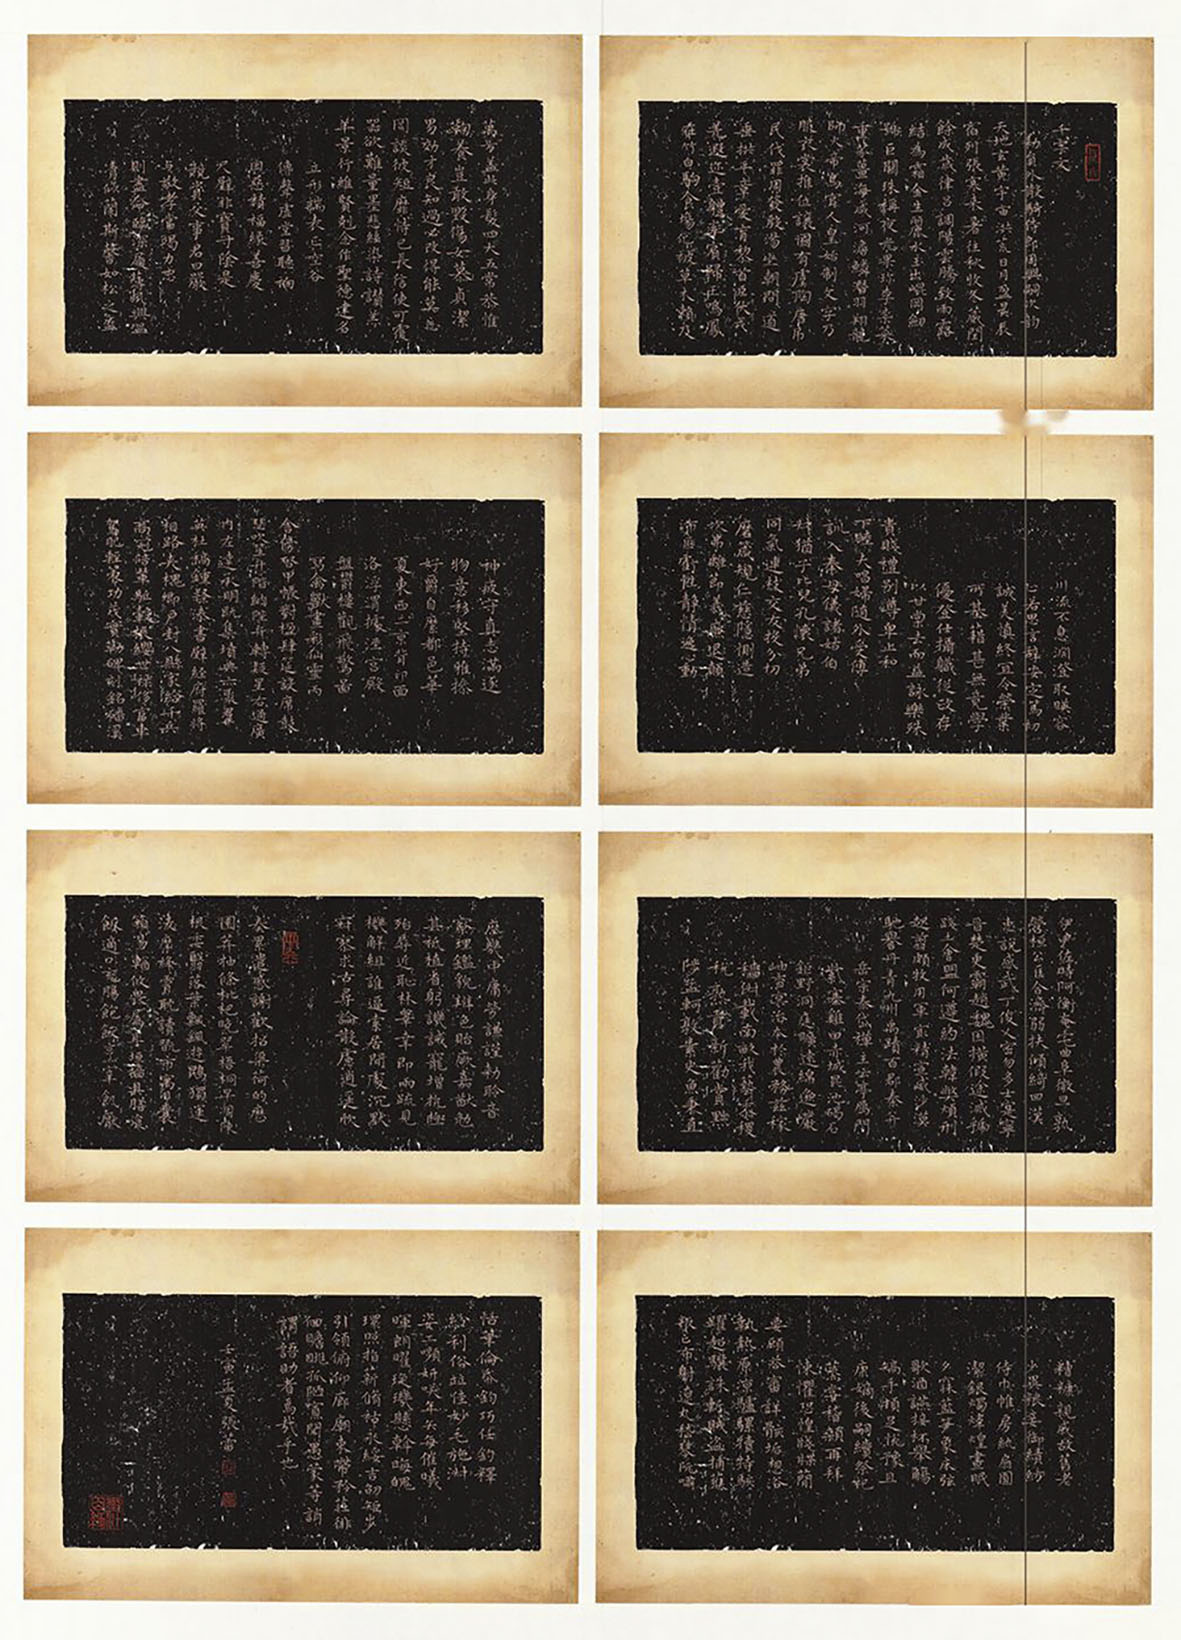 千字文
勅員外散騎侍郎周興嗣次韵
天地玄黄宇宙洪荒日月盈昃辰
宿列張寒來暑往秋收冬藏閏
餘成歲律呂調陽雲騰致雨露
結為霜金生麗水玉出崐岡劍
號巨闕珠稱夜光果珍李柰菜
重芥薑海鹹河淡鱗潛羽翔龍
師火帝鳥官人皇始制文字乃
服衣裳推位讓國有虞陶唐弔
民伐罪周發殷湯坐朝問道
垂拱平章愛育黎首臣伏戎
羌遐邇壹體率賓歸王鳴鳳
在竹白駒食場化被草木賴及
萬方蓋此身髮四大五常恭惟
鞠養豈敢毀傷女慕貞潔
男效才良知過必改得能莫忘
罔談彼短靡恃己長信使可覆
器欲難量墨悲絲染詩讚羔
羊景行維賢剋念作聖德建名
立形端表正空谷
傳聲虛堂習聽禍
因惡積福緣善慶
尺璧非寶寸陰是
競資父事君曰嚴
與敬孝當竭力忠
則盡命臨深履薄夙興溫
凊似蘭斯馨如松之盛
川流不息淵澄取暎容
止若思言辭安定篤初
誠美慎終宜令榮業
所基籍甚無竟學
優登仕攝職從政存
以甘棠去而益詠樂殊
貴賤禮別尊卑上和
下睦夫唱婦隨外受傅
訓入奉母儀諸姑伯
叔猶子比兒孔懷兄弟
同氣連枝交友投分切
磨箴規仁慈隱惻造
次弗離節義廉退顛
沛匪虧性靜情逸心動
神疲守真志滿逐
物意移堅持雅操
好爵自縻都邑華
夏東西二京背邙面
洛浮渭據涇宮殿
盤鬱樓觀飛驚圖
寫禽獸畫彩仙靈丙
舍傍啓甲帳對楹肆筵設席鼓
瑟吹笙升階納陛弁轉疑星右通廣
內左達承明既集墳典亦聚羣
英杜稾鍾隸漆書壁經府羅將
相路夾槐卿戶封八縣家給千兵
高冠陪輦驅轂振纓世祿侈富車
駕肥輕策功茂實勒碑刻銘磻溪
伊尹佐時阿衡奄宅曲阜微旦孰
營桓公匡合濟弱扶傾綺回漢
惠說感武丁俊乂密勿多士寔寧
晉楚更霸趙魏困橫假途滅虢
踐土會盟何遵約法韓弊煩刑
起翦頗牧用軍最精宣威沙漠
馳譽丹青九州禹跡百郡秦并
嶽宗泰岱禪主云亭鴈門
紫塞雞田赤城昆池碣石
鉅野洞庭曠遠綿邈巖
岫杳冥治本於農務茲稼
穡俶載南畝我藝黍稷
稅熟貢新勸賞黜
陟孟軻敦素史魚秉直
庶幾中庸勞謙謹勑聆音
察理鑑貌辨色貽厥嘉猷勉
其祗植省躬譏誡寵增抗極
殆辱近恥林皋幸即兩疏見
機解組誰逼索居閒處沉默
寂寥求古尋論散慮逍遙欣
奏累遣慼謝歡招渠荷的歷
園莽抽條枇杷晚翠梧桐早凋陳
根委翳落葉飄颻遊鵾獨運
凌摩絳霄耽讀翫市寓目囊
箱易輶攸畏屬耳垣牆具膳飡
飯適口充腸飽飫烹宰飢厭
糟糠親戚故舊老
少異糧妾御績紡
侍巾帷房紈扇圓
潔銀燭煒煌晝眠
夕寐藍笋象床弦
歌酒讌接杯舉觴
矯手頓足悅豫且
康嫡後嗣續祭祀
蒸嘗稽顙再拜
悚懼恐惶牋牒簡
要顧答審詳骸垢想浴
執熱願涼驢騾犢特駭
躍超驤誅斬賊盜捕獲
叛亡布射遼丸嵇琴阮嘯
恬筆倫紙鈞巧任釣釋
紛利俗並佳妙毛施淑
姿工顰妍咲年矢每催曦
暉朗曜琁璣懸斡晦魄
環照指薪脩祜永綏吉劭矩步
引領俯仰廊廟束帶矜莊徘
徊瞻眺孤陋寡聞愚蒙等誚
謂語助者焉哉乎也
壬寅孟夏張蕾